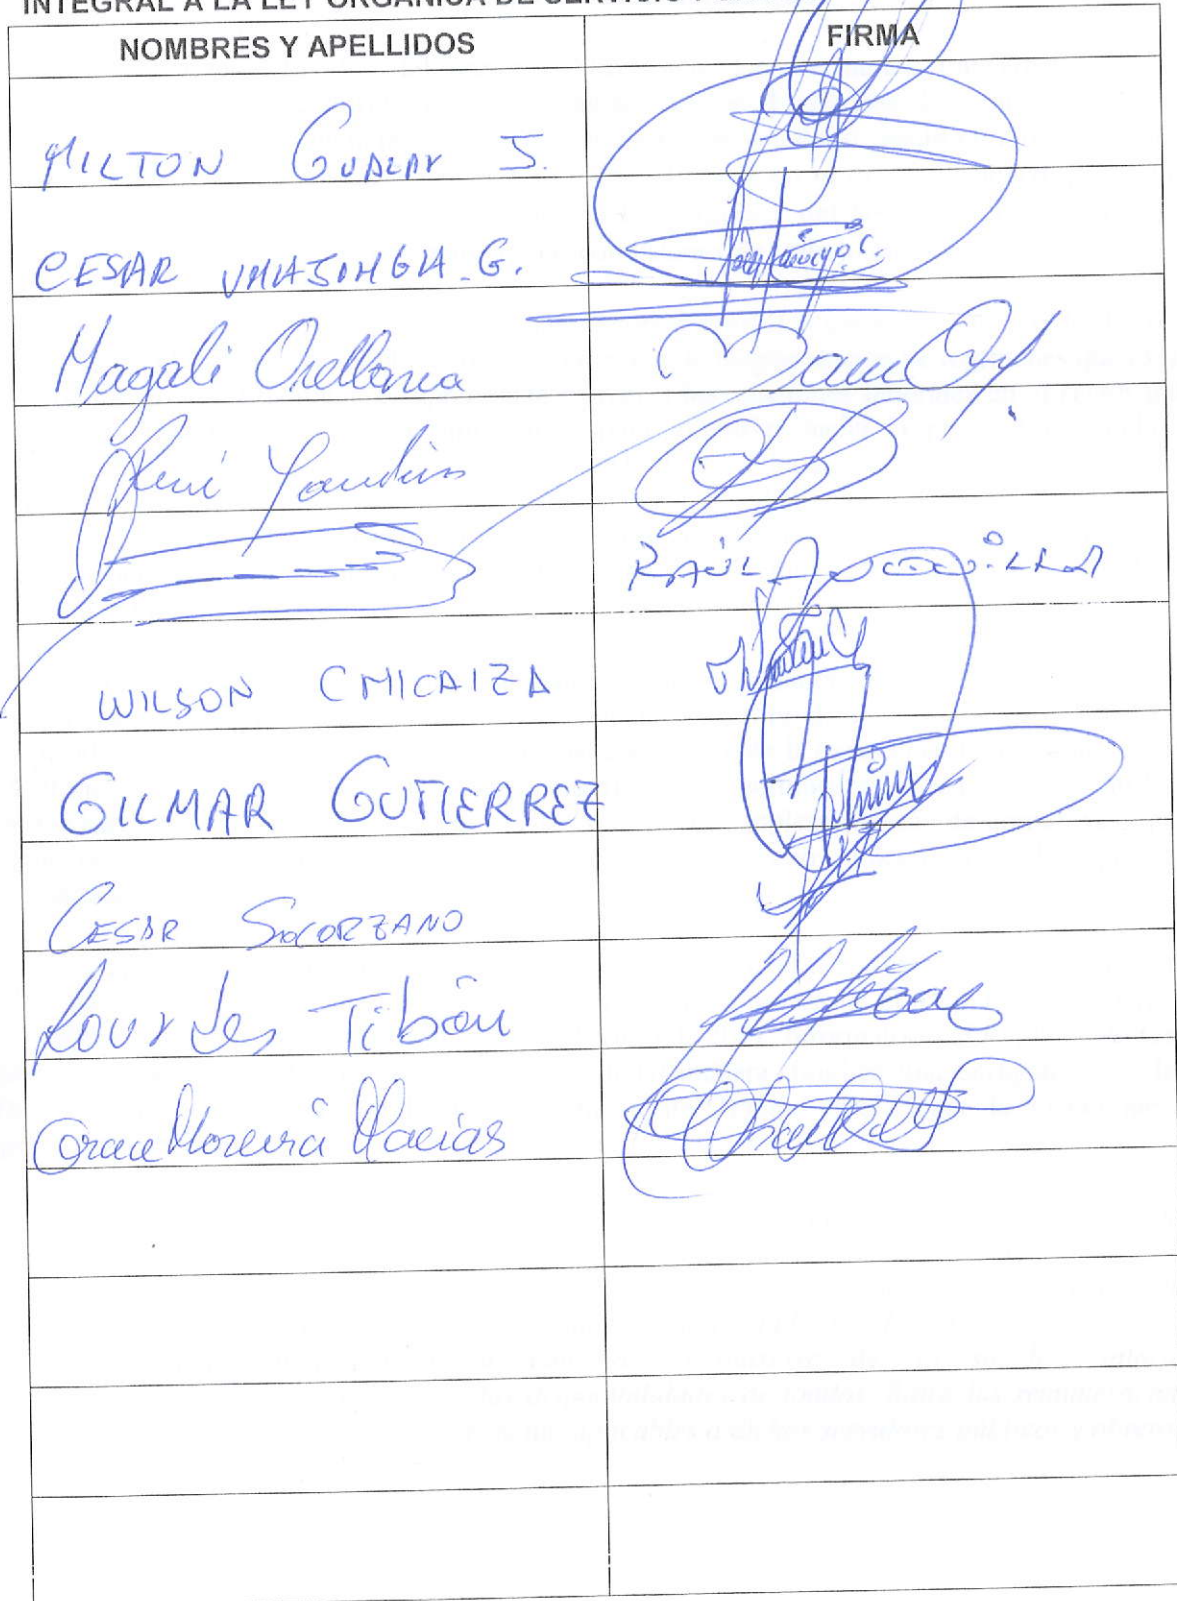 INTEGRAL A LA LEY ORGÁNICA DE SERVICIO
NOMBRES Y APELLIDOS FIRMA
MILTON GUALAN J.
CESAR UMAJINGA G.
Magali Orellana
René Yandún
RAÚL
WILSON CHICAIZA
GILMAR GUTIERREZ
CESAR SOLORZANO
Lourdes Tibán
Grace Moreira Macias